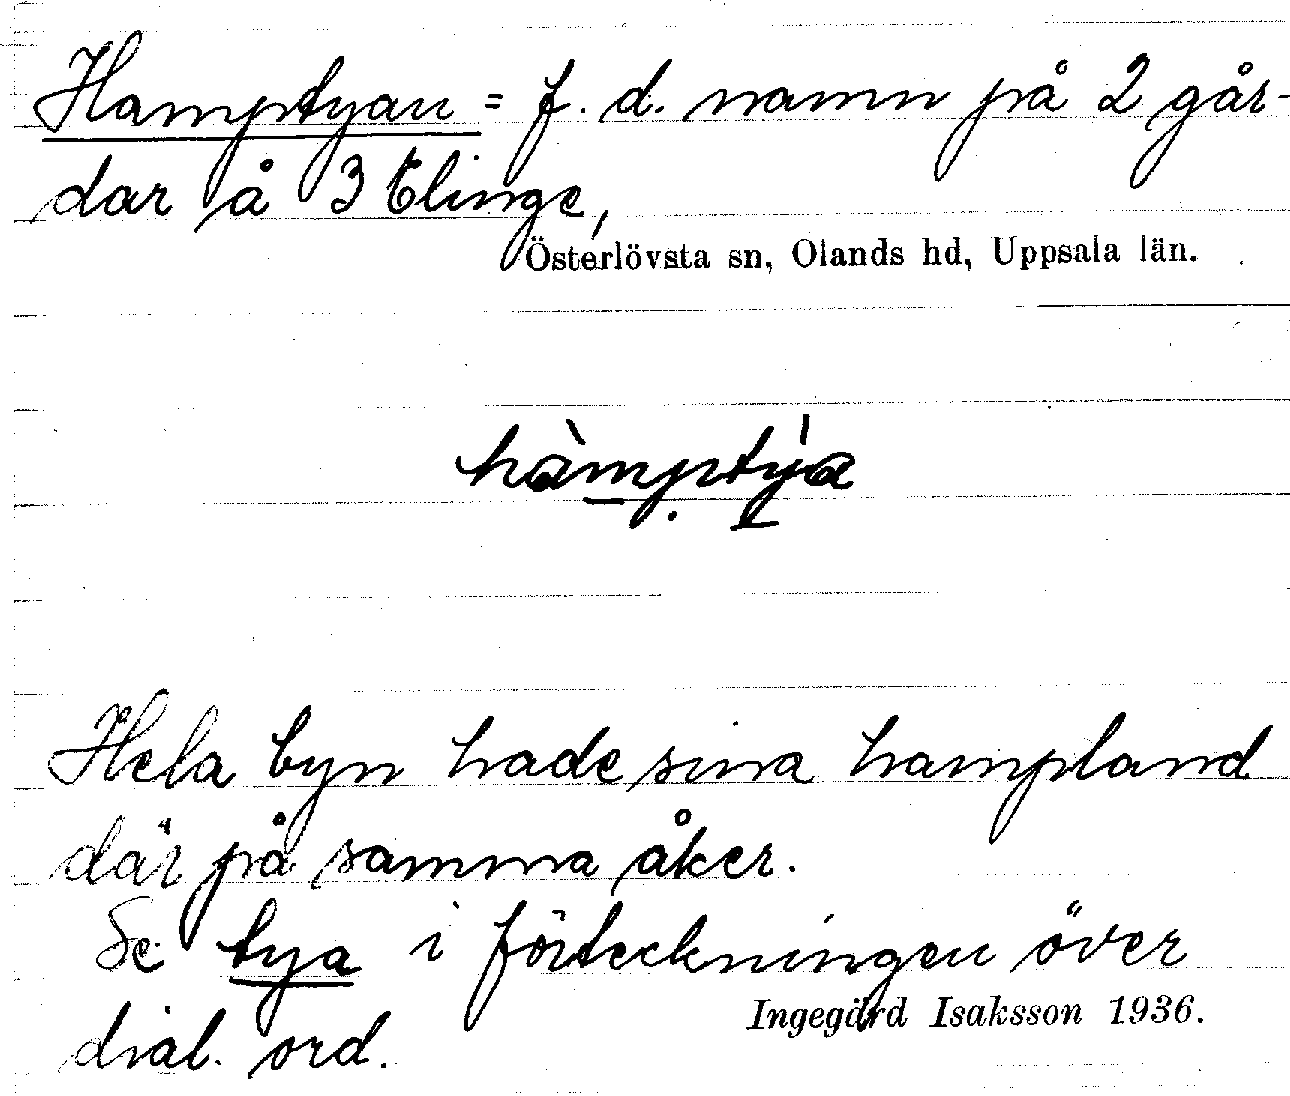 Hamptyan = f. d. namn på 2 går-
dar å 3 Elinge,
Österlövsta sn, Olands hd, Uppsala län.
hàmptýa
Hela byn hade sina hampland
där på samma åker.
Se tya i förteckningen över
Ingegärd Isaksson 1936.
dial. ord.